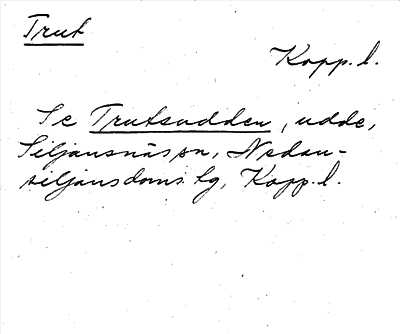 Trut
Kopp. l.
Se Trutsudden, udde,
Siljansnäs sn, Nedan-
siljans doms. hg, Kopp. l.